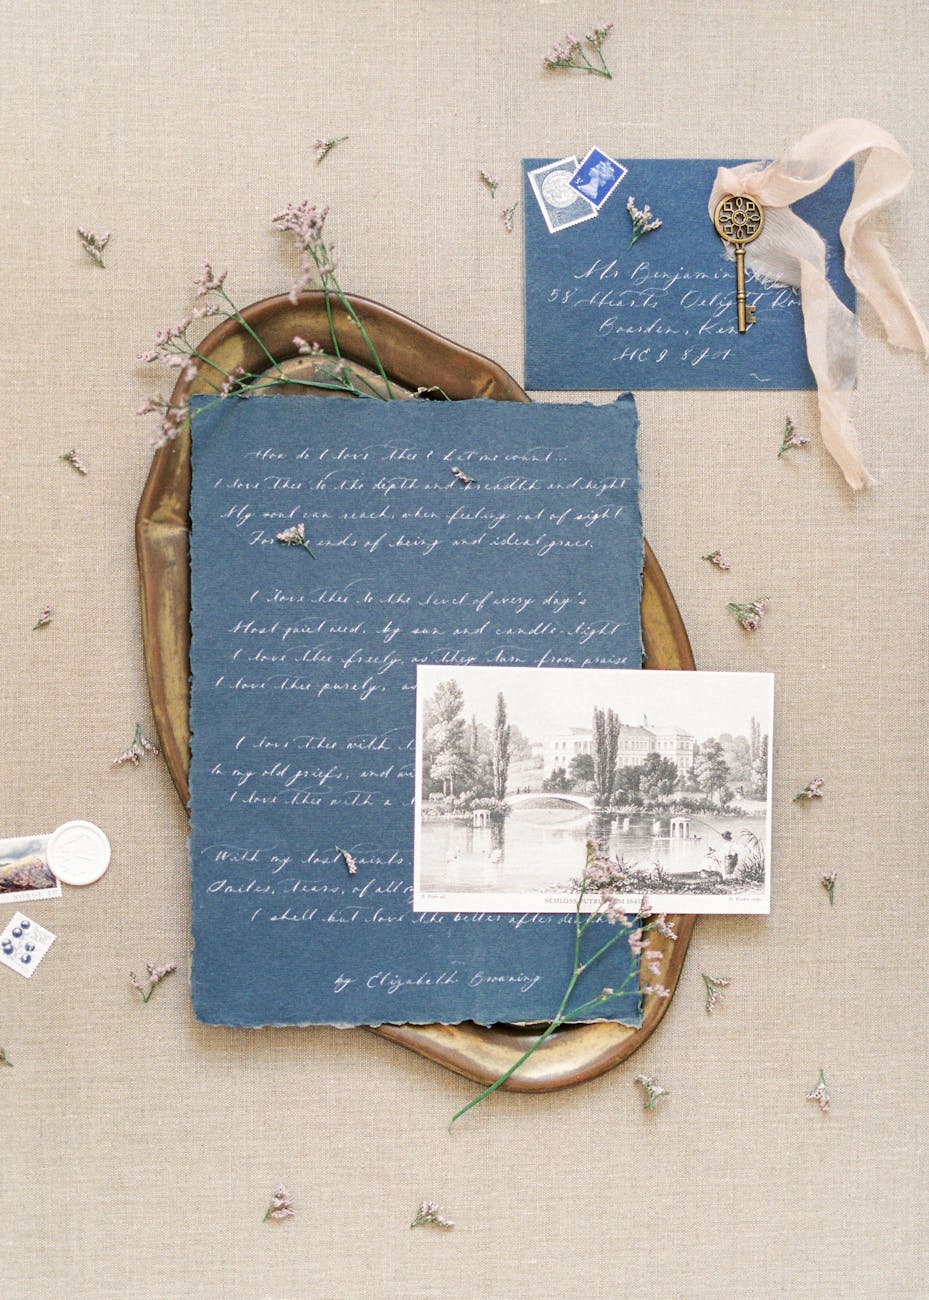 Mr Benjamin
58 Hearts Delight
Boarden, Ken
ME9 8JA
How do I love thee? Let me count...
I love thee to the depth and breadth and hight
My soul can reach, when feeling out of sight
For ends of being and ideal grace.
I love thee to the level of every day's
Most quiet need, by sun and candle-light
I love thee freely, as they turn from praise
I love thee purely, as
I love thee with t
In my old griefs, and wi
I love thee with a l
With my lost saints.
Smiles, tears, of all m
I shall but love the better after death
by Elizabeth Browning
SCHLOSS PUTBUS
NOREG